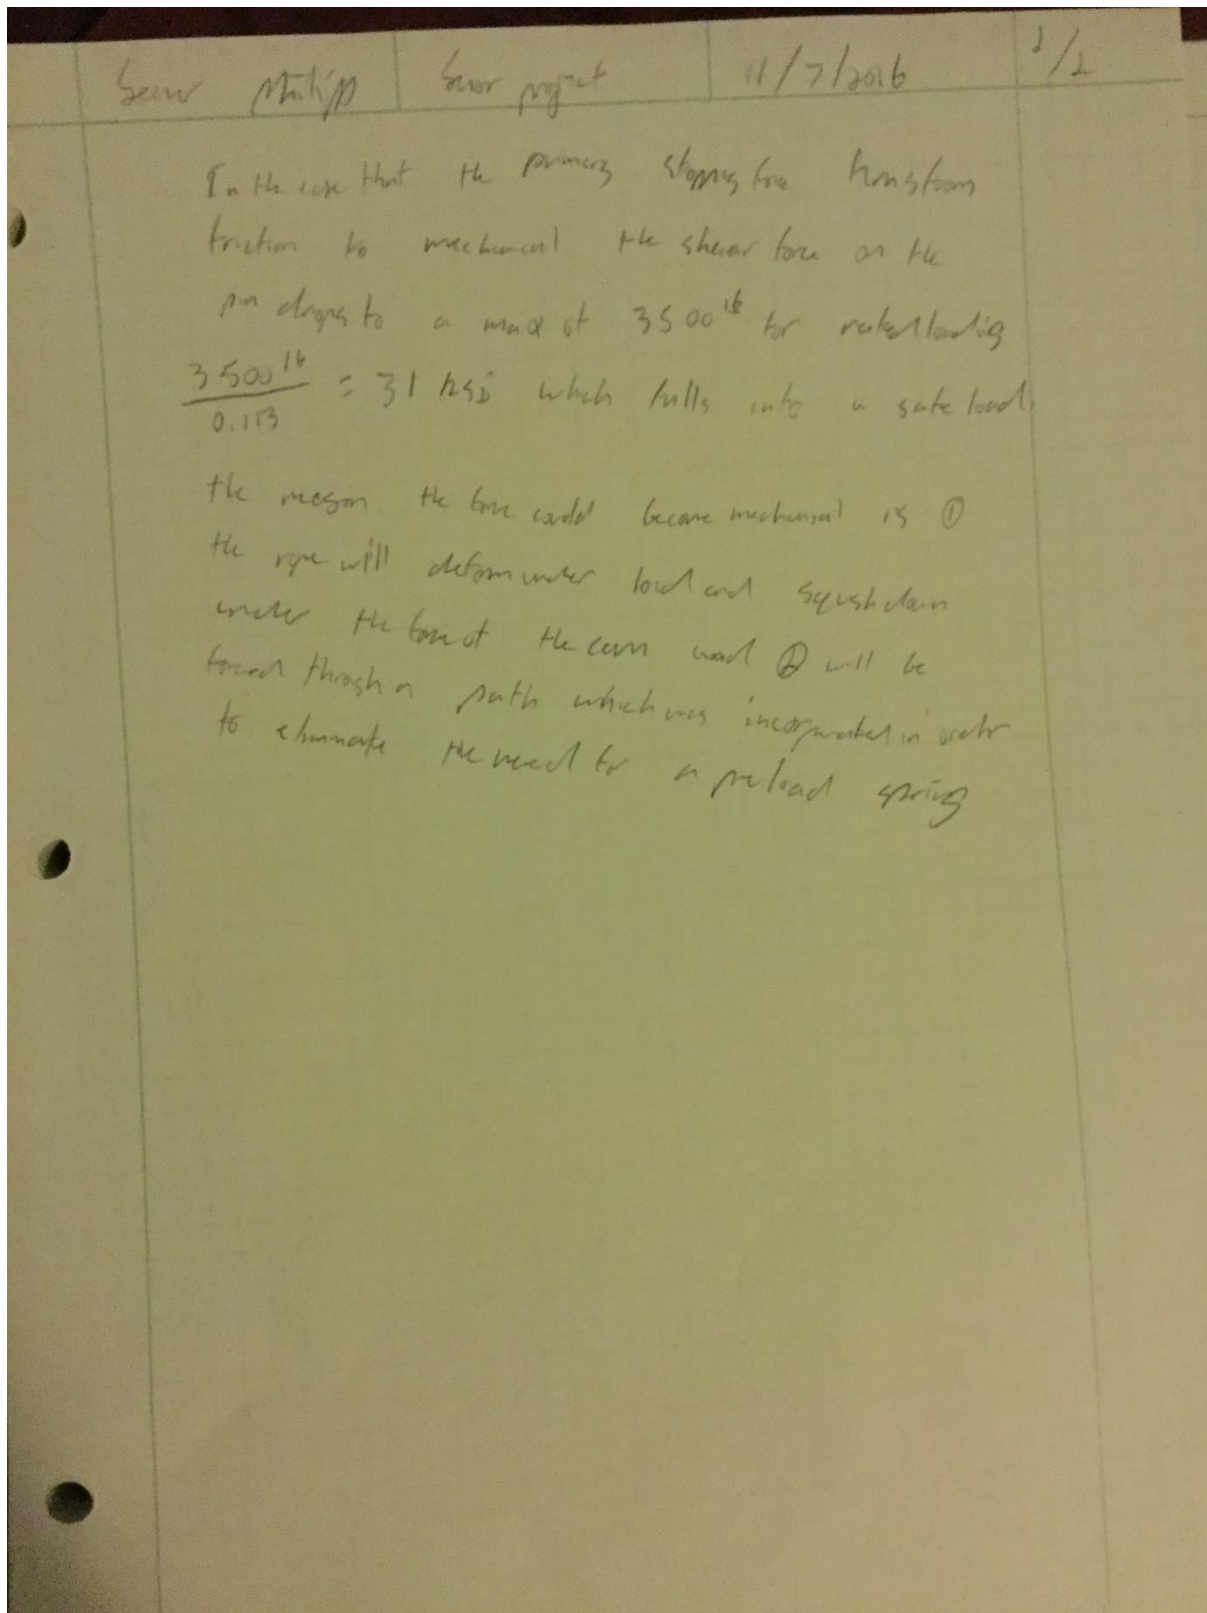 Senior project 11/7/2016 2/2
In the case that the primary stopping force transforms
friction to mechanical the shear force on the
pin drops to a max of 3500 lb for rated loading
3500 lb / 0.113 = 31 ksi which falls into a safe load.
the reason the force could become mechanical is ①
the rope will deform under load and squish down
under the force of the cam and ② will be
forced through a path which was incorporated in order
to eliminate the need for a preload spring